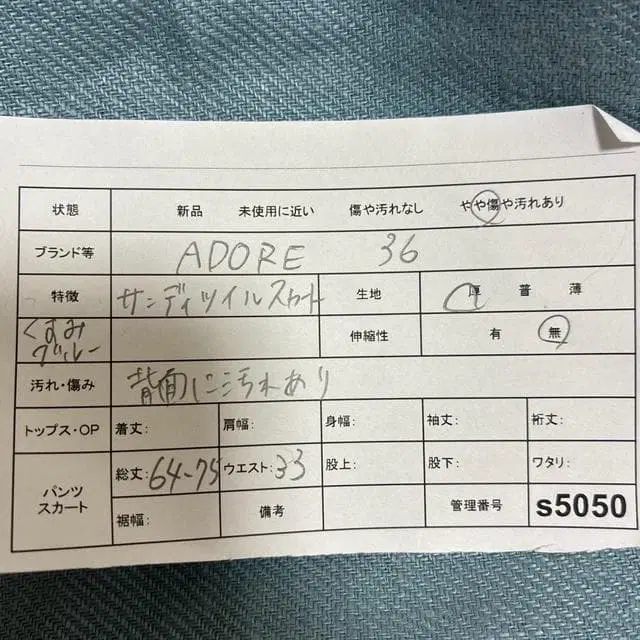 状態 新品 未使用に近い 傷や汚れなし やや傷や汚れあり
ブランド等 ADORE 36
特徴 サンディツイルスカート 生地 厚 普 薄
くすみ
ブルー 伸縮性 有 無
汚れ・傷み 背面に汚れあり
トップス・OP 着丈: 肩幅: 身幅: 袖丈: 裄丈:
パンツ
スカート 総丈:64-75 ウエスト:33 股上: 股下: ワタリ:
裾幅: 備考 管理番号 s5050